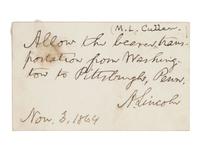 M. L. Cullen.
Allow the bearer, trans-
portation from Washing-
ton to Pittsburgh, Penn.
A. Lincoln
Nov. 3, 1864